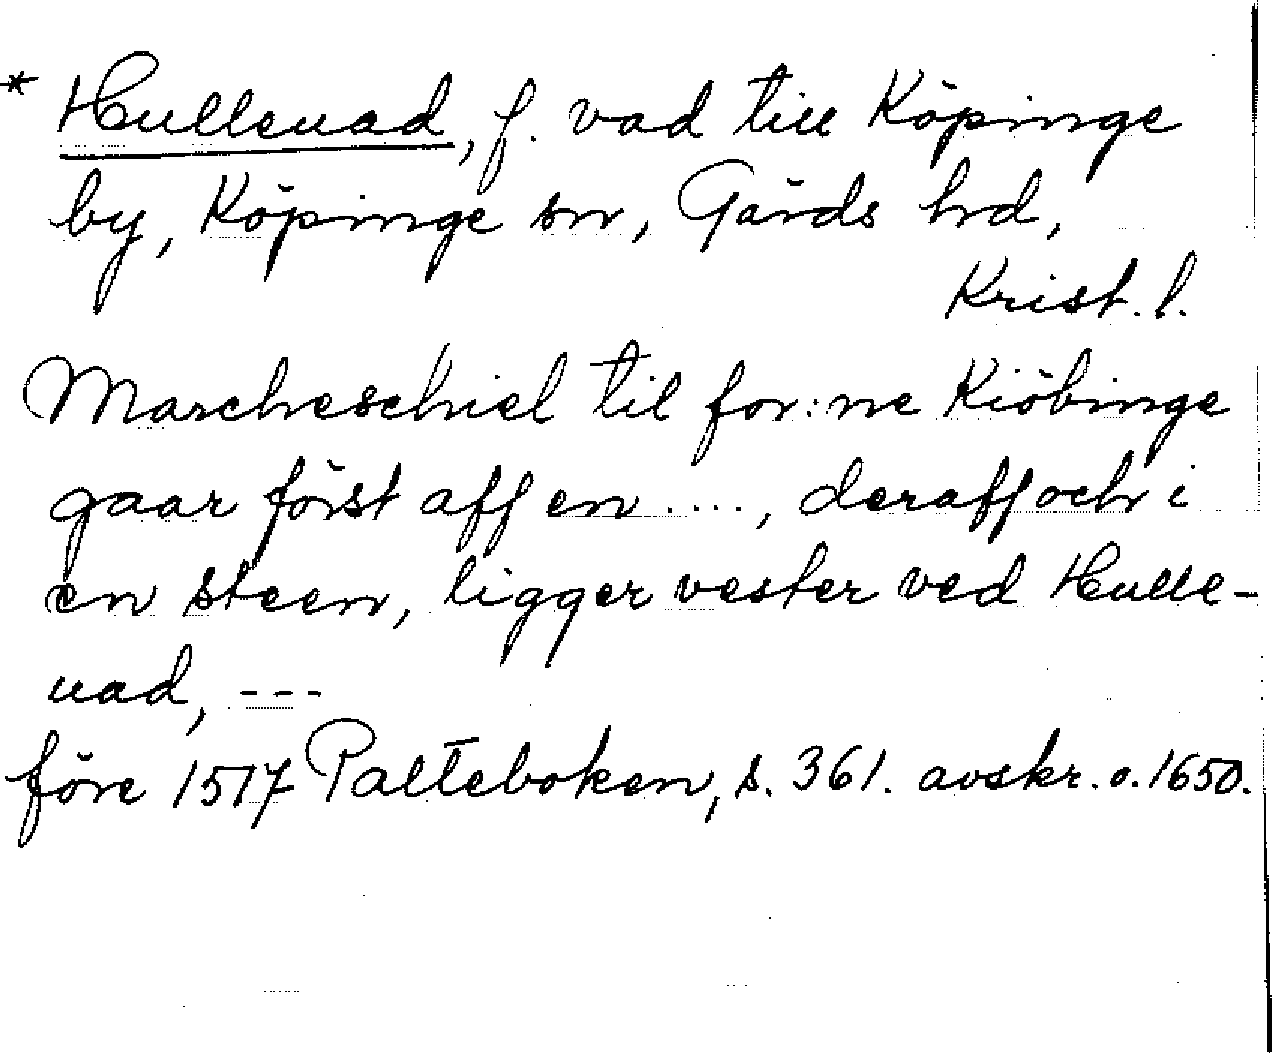 * Hulleuad, f. vad till Köpinge
by, Köpinge sn, Gärds hrd,
Krist. l.
Marcheschiel til for:ne Kiöbinge
gaar först aff en ...., deraff och i
en steen, ligger vester ved Hulle-
uad, ---
före 1517 Palteboken, s. 361. avskr. o. 1650.